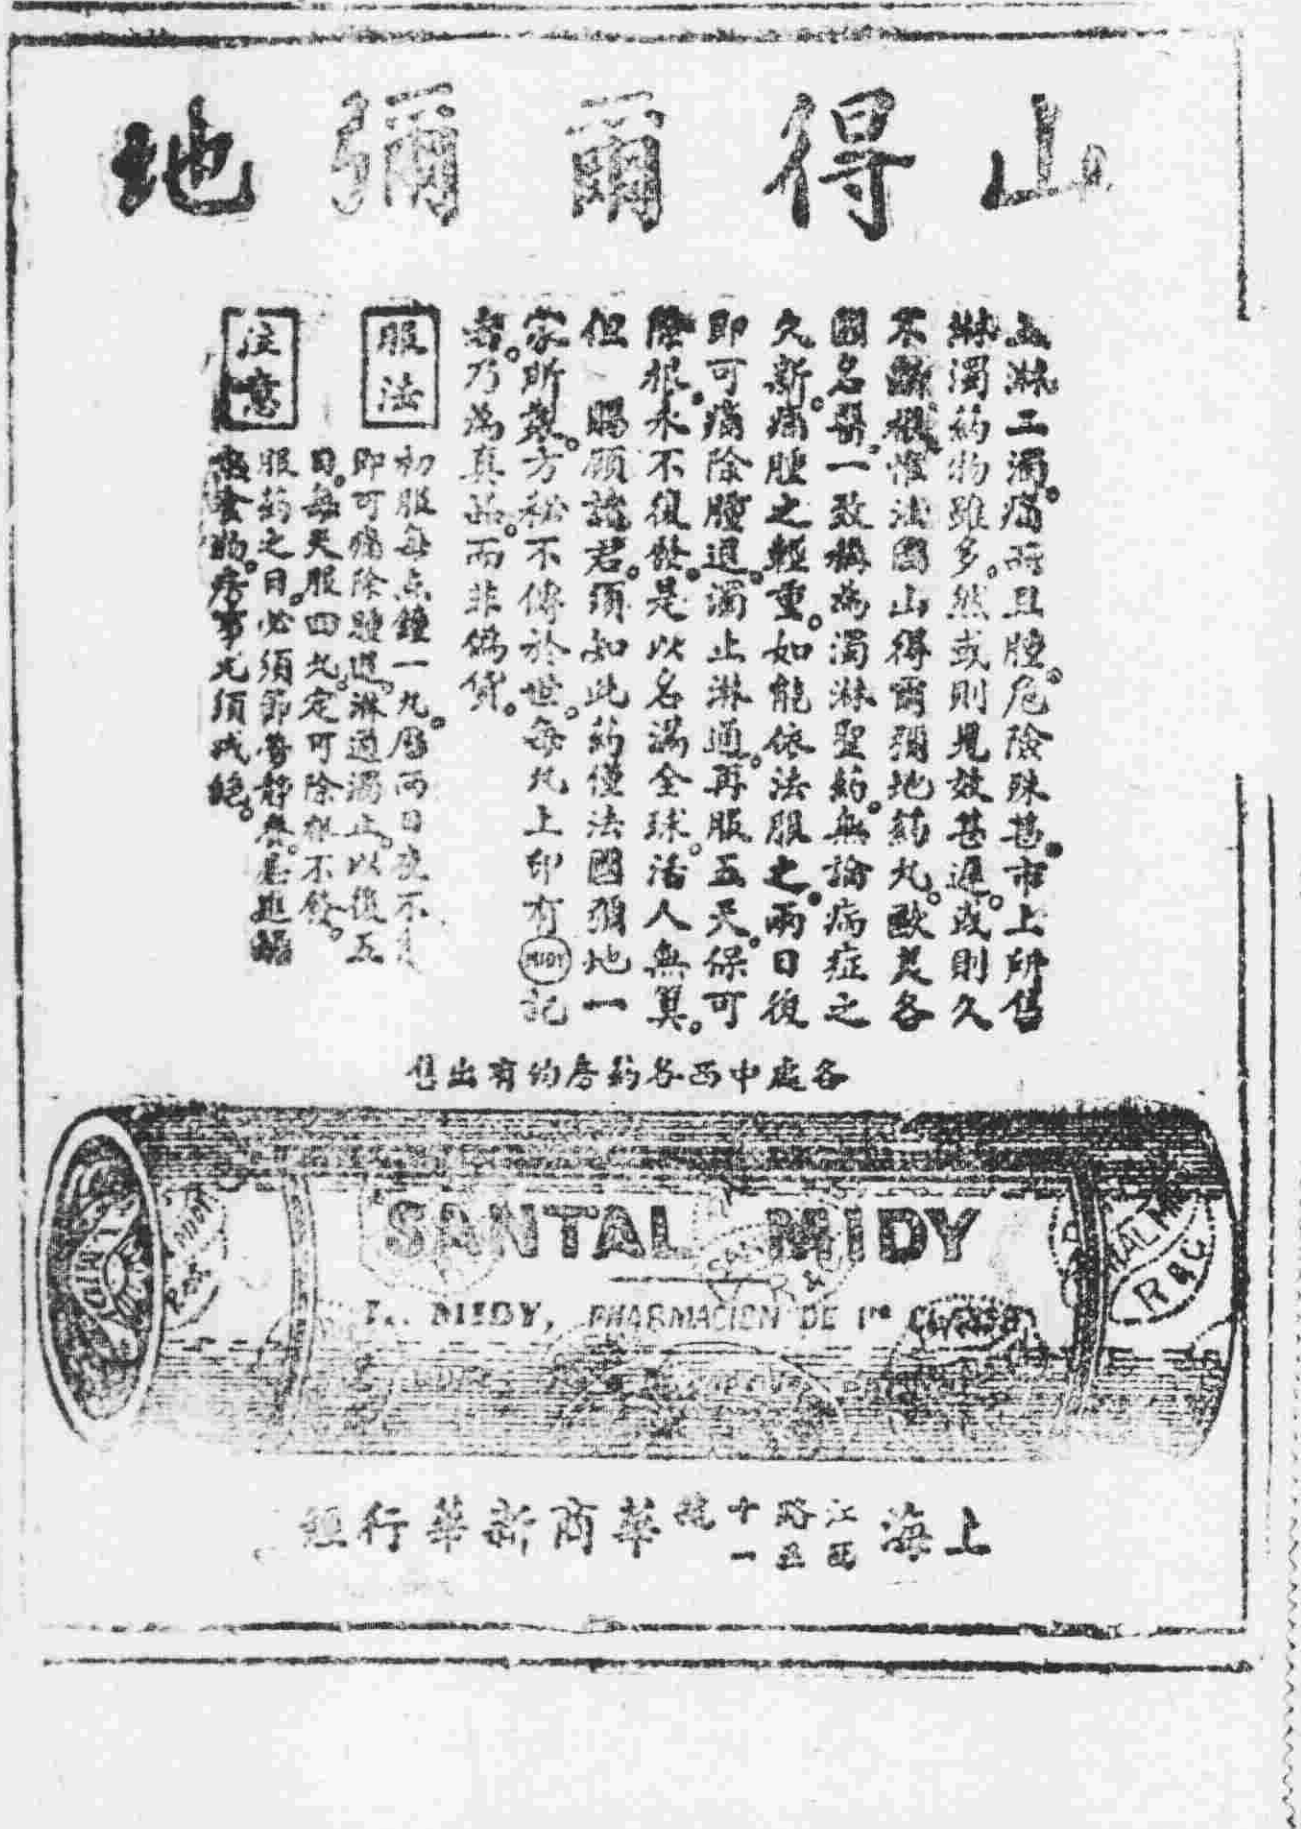 山得爾彌地
五淋二濁。痛而且腫。危險殊甚。市上所售
淋濁药物雖多。然或則見效甚遲。或則久
不斷根。惟法國山得爾彌地药丸。歐美各
國名醫。一致稱為濁淋聖药。無論病症之
久新。痛腫之輕重。如能依法服之。兩日後
即可痛除腫退。濁止淋通。再服五天。保可
除根。永不復發。是以名滿全球。活人無算。
但 賜顧諸君。須知此药僅法國彌地一
家所製。方秘不傳於世。每丸上印有MIDY記
者。乃為真品。而非偽貨。
服法
初服每点鐘一丸。服兩日夜不
即可痛除腫退。淋通濁止。以後五
日。每天服四丸。定可除根不發。
注意
服药之日。必須節勞靜養。忌進
食物。房事尤須戒絕。
各處中西各药房均有出售
SANTAL MIDY
L. MIDY, PHARMACIEN DE 1re CLASSE
MIDY
R & C
上海江西路五十一號華商新華行經